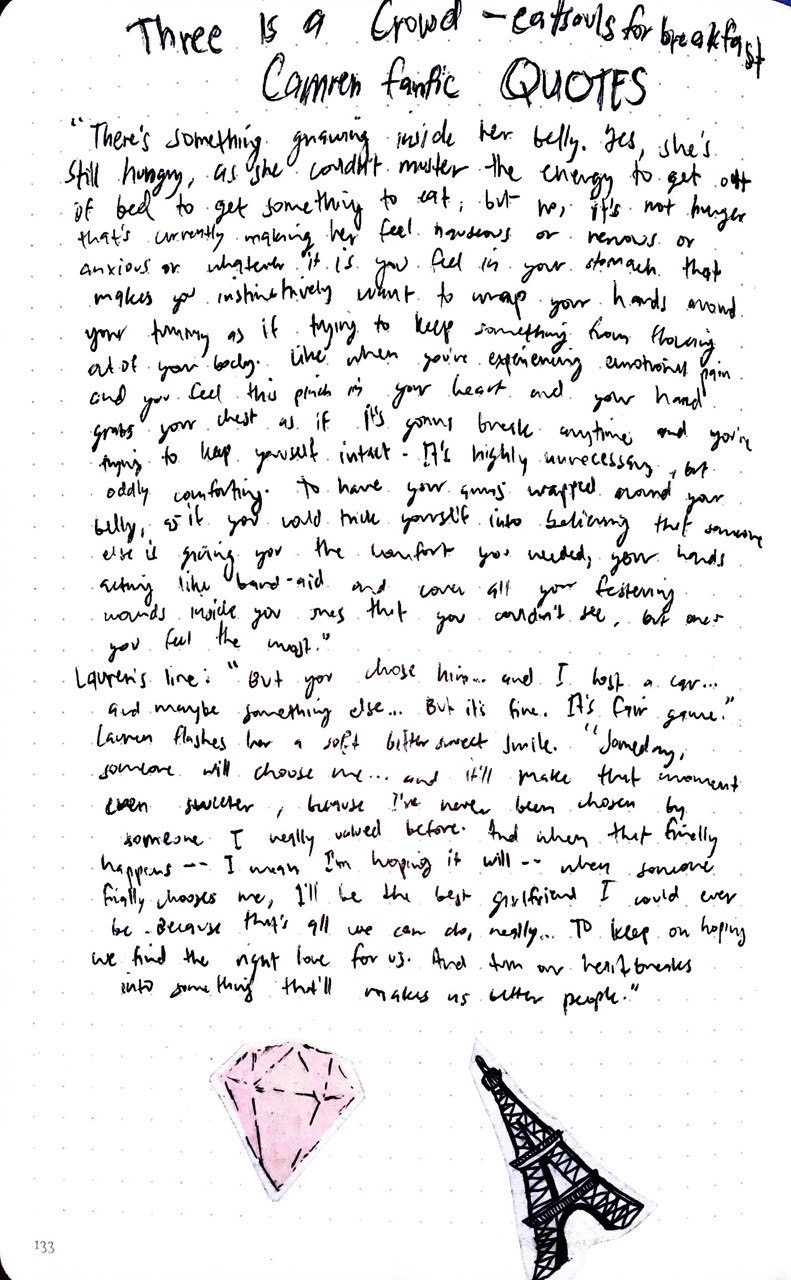 Three Is a Crowd - eatsouls for breakfast
Camren fanfic QUOTES
"There's something gnawing inside her belly. Yes, she's
still hungry, as she couldn't muster the energy to get off
of bed to get something to eat, but no, it's not hunger
that's currently making her feel nauseous or nervous or
anxious or whatever it is you feel in your stomach that
makes you instinctively want to wrap your hands around
your tummy as if trying to keep something from flowing
out of your body. Like when you're experiencing emotional pain
and you feel this pinch in your heart and your hand
grabs your chest as if it's gonna break anytime and you're
trying to keep yourself intact. It's highly unnecessary, but
oddly comforting. To have your arms wrapped around your
belly, as if you could trick yourself into believing that someone
else is giving you the comfort you needed, your hands
acting like band-aid and cover all your festering
wounds inside you ones that you couldn't see, but ones
you feel the most."
Lauren's line: "But you chose him... and I lost a car...
and maybe something else... But it's fine. It's fair game."
Lauren flashes her a soft bittersweet smile. "Someday,
someone will choose me... and it'll make that moment
even sweeter, because I've never been chosen by
someone I really valued before. And when that finally
happens -- I mean I'm hoping it will -- when someone
finally chooses me, I'll be the best girlfriend I could ever
be. Because that's all we can do, really... To keep on hoping
we find the right love for us. And turn our heartbreaks
into something that'll makes us better people."
133